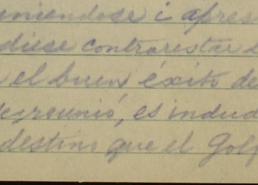 uniendose i apres
diese contrarestar
el buen éxito de
reunió, es indud
destino que el Golf